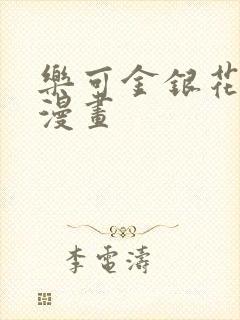 樂可金銀花
漫畫
李電濤